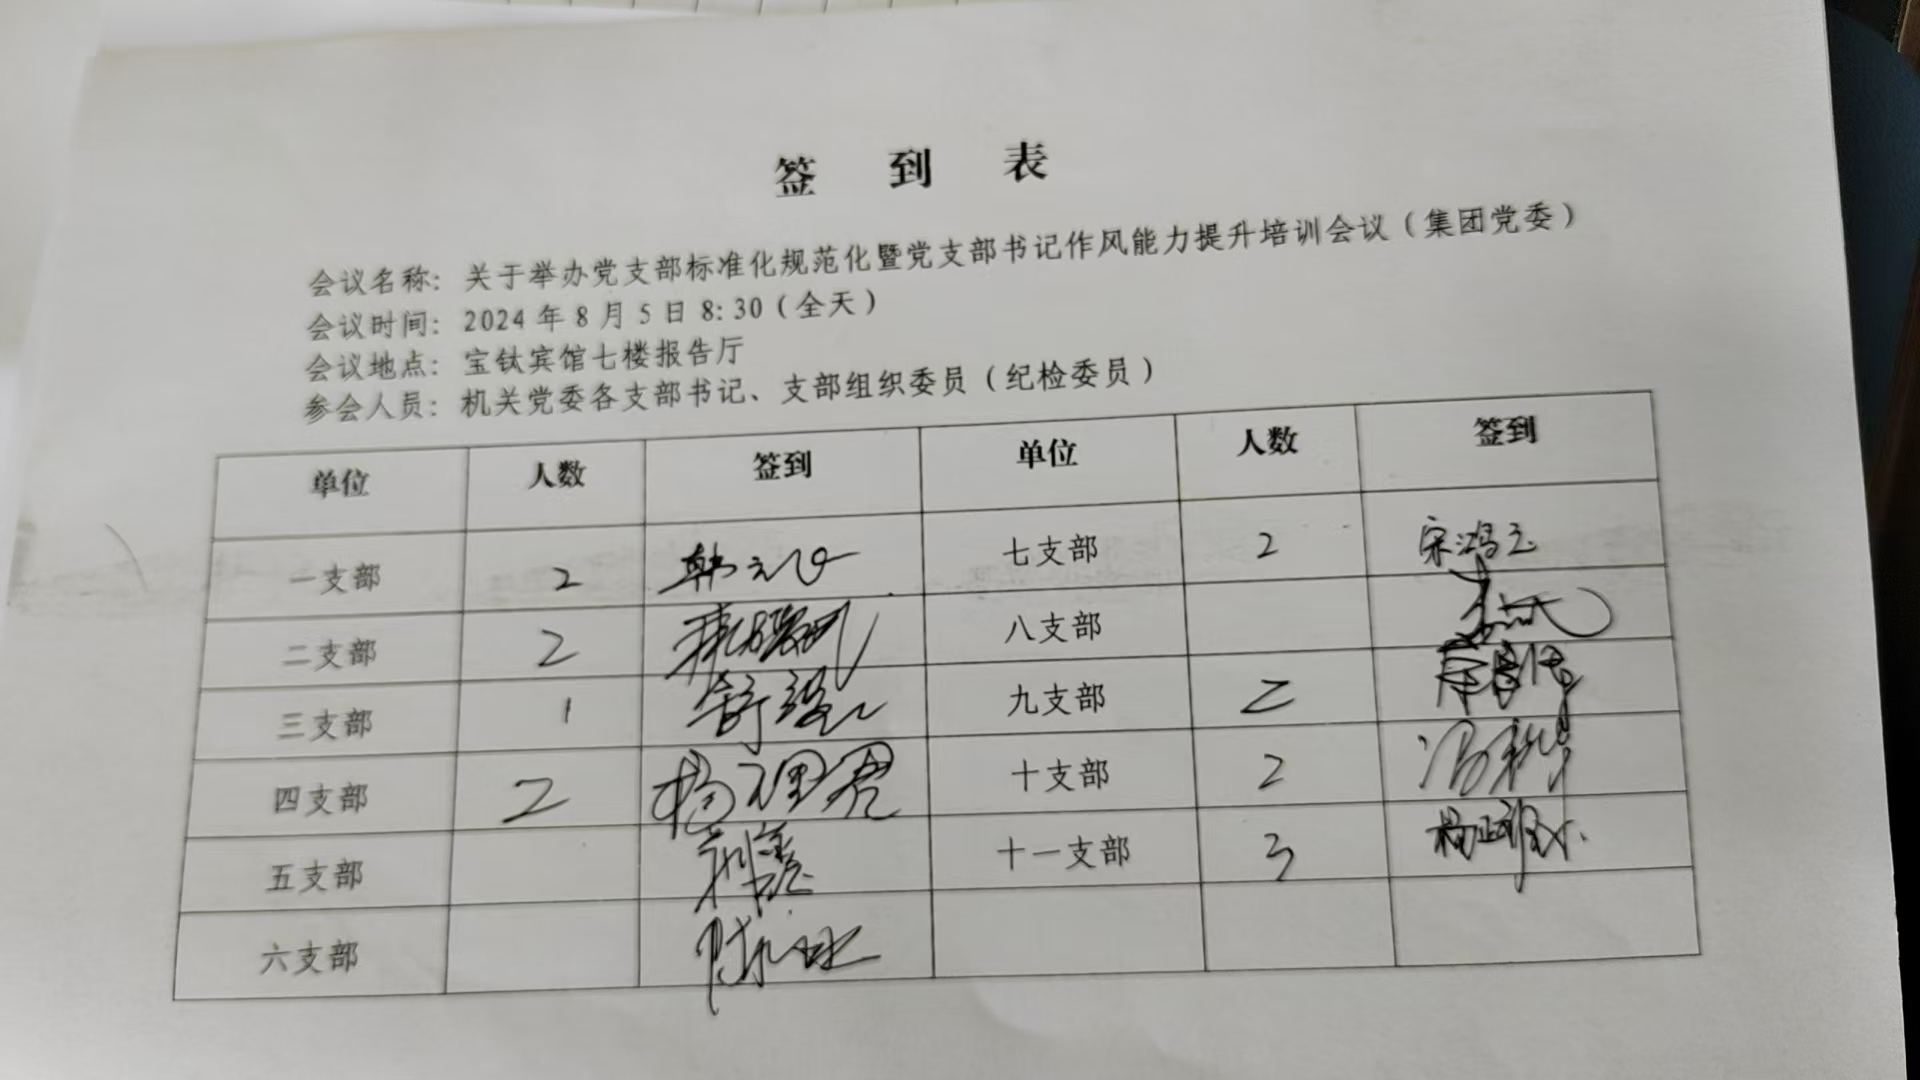 签到表
会议名称：关于举办党支部标准化规范化暨党支部书记作风能力提升培训会议（集团党委）
会议时间：2024年8月5日8:30（全天）
会议地点：宝钛宾馆七楼报告厅
参会人员：机关党委各支部书记、支部组织委员（纪检委员）
单位 人数 签到 单位 人数 签到
一支部 2 七支部 2
二支部 2 八支部
三支部 1 九支部 2
四支部 2 杨理君 十支部 2
五支部 十一支部 3
六支部